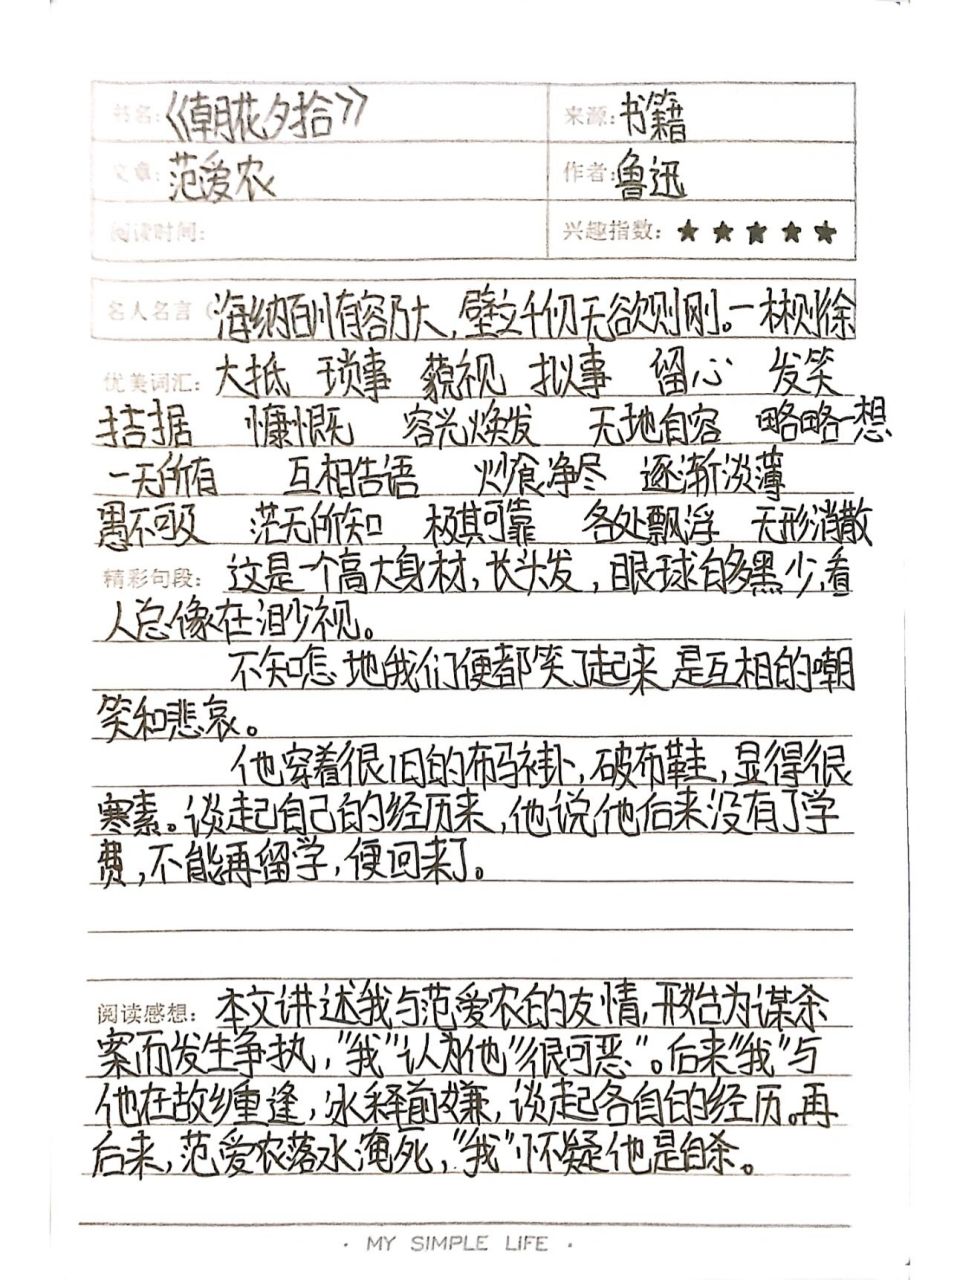 书名:《朝花夕拾》 来源:书籍
文章:范爱农 作者:鲁迅
阅读时间: 兴趣指数:★★★★★
名人名言( 海纳百川有容乃大,壁立千仞无欲则刚。一林则徐
优美词汇: 大抵 琐事 藐视 拟事 留心 发笑
拮据 慷慨 容光焕发 无地自容 略略一想
一无所有 互相告语 炒食净尽 逐渐淡薄
愚不可及 茫无所知 极其可靠 各处飘浮 无形消散
精彩句段: 这是一个高大身材,长头发,眼球白多黑少,看
人总像在渺视。
不知怎地我们便都笑了起来是互相的嘲
笑和悲哀。
他穿着很旧的布马褂,破布鞋,显得很
寒素。谈起自己的经历来,他说他后来没有了学
费,不能再留学,便回来了。
阅读感想: 本文讲述我与范爱农的友情,开始为谋杀
案而发生争执,"我"认为他"很可恶"。后来"我"与
他在故乡重逢,冰释前嫌,谈起各自的经历。再
后来,范爱农落水淹死,"我"怀疑他是自杀。
· MY SIMPLE LIFE ·